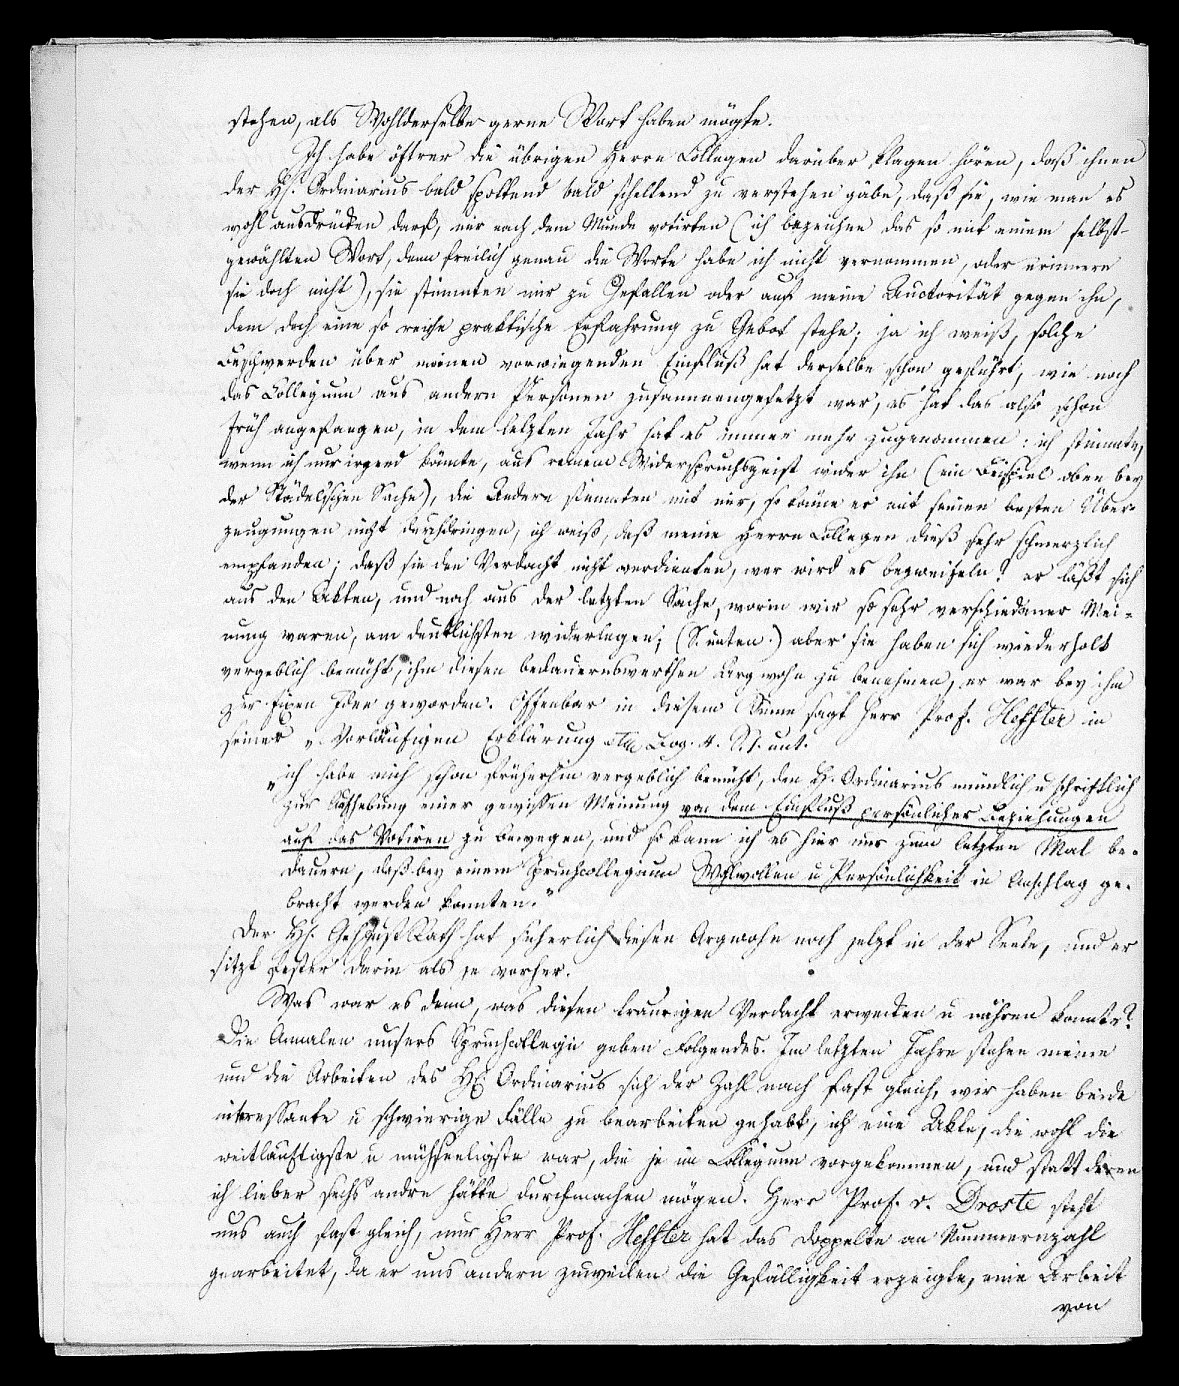 stehen, als Wohlderselbe gerne Wort haben mögte.
Ich habe öftrer die übrigen Herrn Collegen darüber klagen hören, daß ihnen
der H. Ordinarius bald spottend bald scheltend zu verstehen gäbe, daß sie, wie man es
wohl ausdrücken darf, mir nach dem Munde votirten (ich bezeichne das so mit einem selbst-
gewählten Wort, denn freilich genau die Worte habe ich nicht vernommen, oder erinnere
sie doch nicht), sie stimmten mir zu Gefallen oder auf meine Auctorität gegen ihn,
dem doch eine so reiche praktische Erfahrung zu Gebot stehe; ja ich weiß, solche
Beschwerden über meinen vorwiegenden Einfluß hat derselbe schon geführt, wie noch
das Collegium aus andern Personen zusammengesetzt war, es hat das also schon
früh angefangen, in dem letzten Jahr hat es immer mehr zugenommen: ich stimmte,
wenn ich nur irgend könnte, aus reinem Widerspruchsgeist wider ihn (ein Beispiel oben bey
der Städelschen Sache), die Andern stimmten mit mir, so könne er mit seinen besten Über-
zeugungen nicht durchdringen; ich weiß, daß meine Herrn Collegen dieß sehr schmerzlich
empfanden; daß sie den Verdacht nicht verdienten, wer wird es bezweifeln? er läßt sich
aus den Akten, und noch aus der letzten Sache, worin wir so sehr verschiedener Mei-
nung waren, am deutlichsten widerlegen; (S. unten.) aber sie haben sich wiederholt
vergeblich bemüht, ihm diesen bedauernswerthen Argwohn zu benehmen, er war bey ihm
zur fixen Idee geworden. Offenbar in diesem Sinne sagt Herr Prof. Heffter in
seiner „Vorläufigen Erklärung Bog. 4. S. 1. unt.
„ich habe mich schon früherhin vergeblich bemüht, den H. Ordinarius mündlich u schriftlich
zur Aufhebung einer gewissen Meinung von dem Einfluß persönlicher Beziehungen
auf das Votiren zu bewegen, und so kann ich es hier nur zum letzten Mal be-
dauern, daß bey einem Spruchcollegium Wohlwollen u Persönlichkeit in Anschlag ge-
bracht werden konnten."
Der H. Geh Just Rath hat sicherlich diesen Argwohn noch jetzt in der Seele, und er
sitzt fester darin als je vorher.
Was war es denn, was diesen traurigen Verdacht erwecken u nähren konnte?
Die Annalen unsers Spruchcollegii geben Folgendes. Im letzten Jahre stehen meine
und die Arbeiten des H. Ordinarius sich der Zahl nach fast gleich, wir haben beide
interessante u schwierige Fälle zu bearbeiten gehabt, ich eine Akte, die wohl die
weitläuftigste u mühseeligste war, die je im Collegium vorgekommen, und statt deren
ich lieber sechs andre hätte durchmachen mögen. Herr Prof. v. Droste steht
uns auch fast gleich, nur Herr Prof. Heffter hat das doppelte an Nummernzahl
gearbeitet, da er uns andern zuweilen die Gefälligkeit erzeigte, eine Arbeit
von